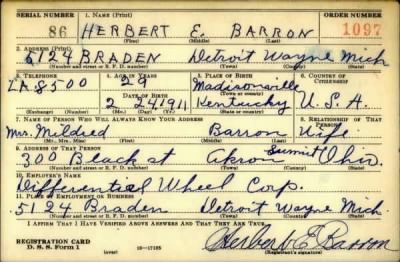 SERIAL NUMBER 1. NAME (Print) ORDER NUMBER
86 HERBERT E. BARRON 1097
(First) (Middle) (Last)
2. ADDRESS (Print)
5124 BRADEN Detroit Wayne Mich
(Number and street or R. F. D. number) (Town) (County) (State)
3. TELEPHONE 4. AGE IN YEARS 5. PLACE OF BIRTH 6. COUNTRY OF CITIZENSHIP
29 Madisonville
LA. 8500 DATE OF BIRTH (Town or county)
2 24 1911 Kentucky U.S.A.
(Exchange) (Number) (Mo.) (Day) (Yr.) (State or country)
7. NAME OF PERSON WHO WILL ALWAYS KNOW YOUR ADDRESS 8. RELATIONSHIP OF THAT PERSON
Mrs. Mildred Barron Wife
(Mr., Mrs., Miss) (First) (Middle) (Last)
9. ADDRESS OF THAT PERSON
300 Black st Akron Summit Ohio.
(Number and street or R. F. D. number) (Town) (County) (State)
10. EMPLOYER'S NAME
Differential Wheel Corp.
11. PLACE OF EMPLOYMENT OR BUSINESS
5124 Braden Detroit Wayne Mich.
(Number and street or R. F. D. number) (Town) (County) (State)
I AFFIRM THAT I HAVE VERIFIED ABOVE ANSWERS AND THAT THEY ARE TRUE.
REGISTRATION CARD
D. S. S. Form 1 (over) 16—17105 Herbert E Barron
(Registrant's signature)